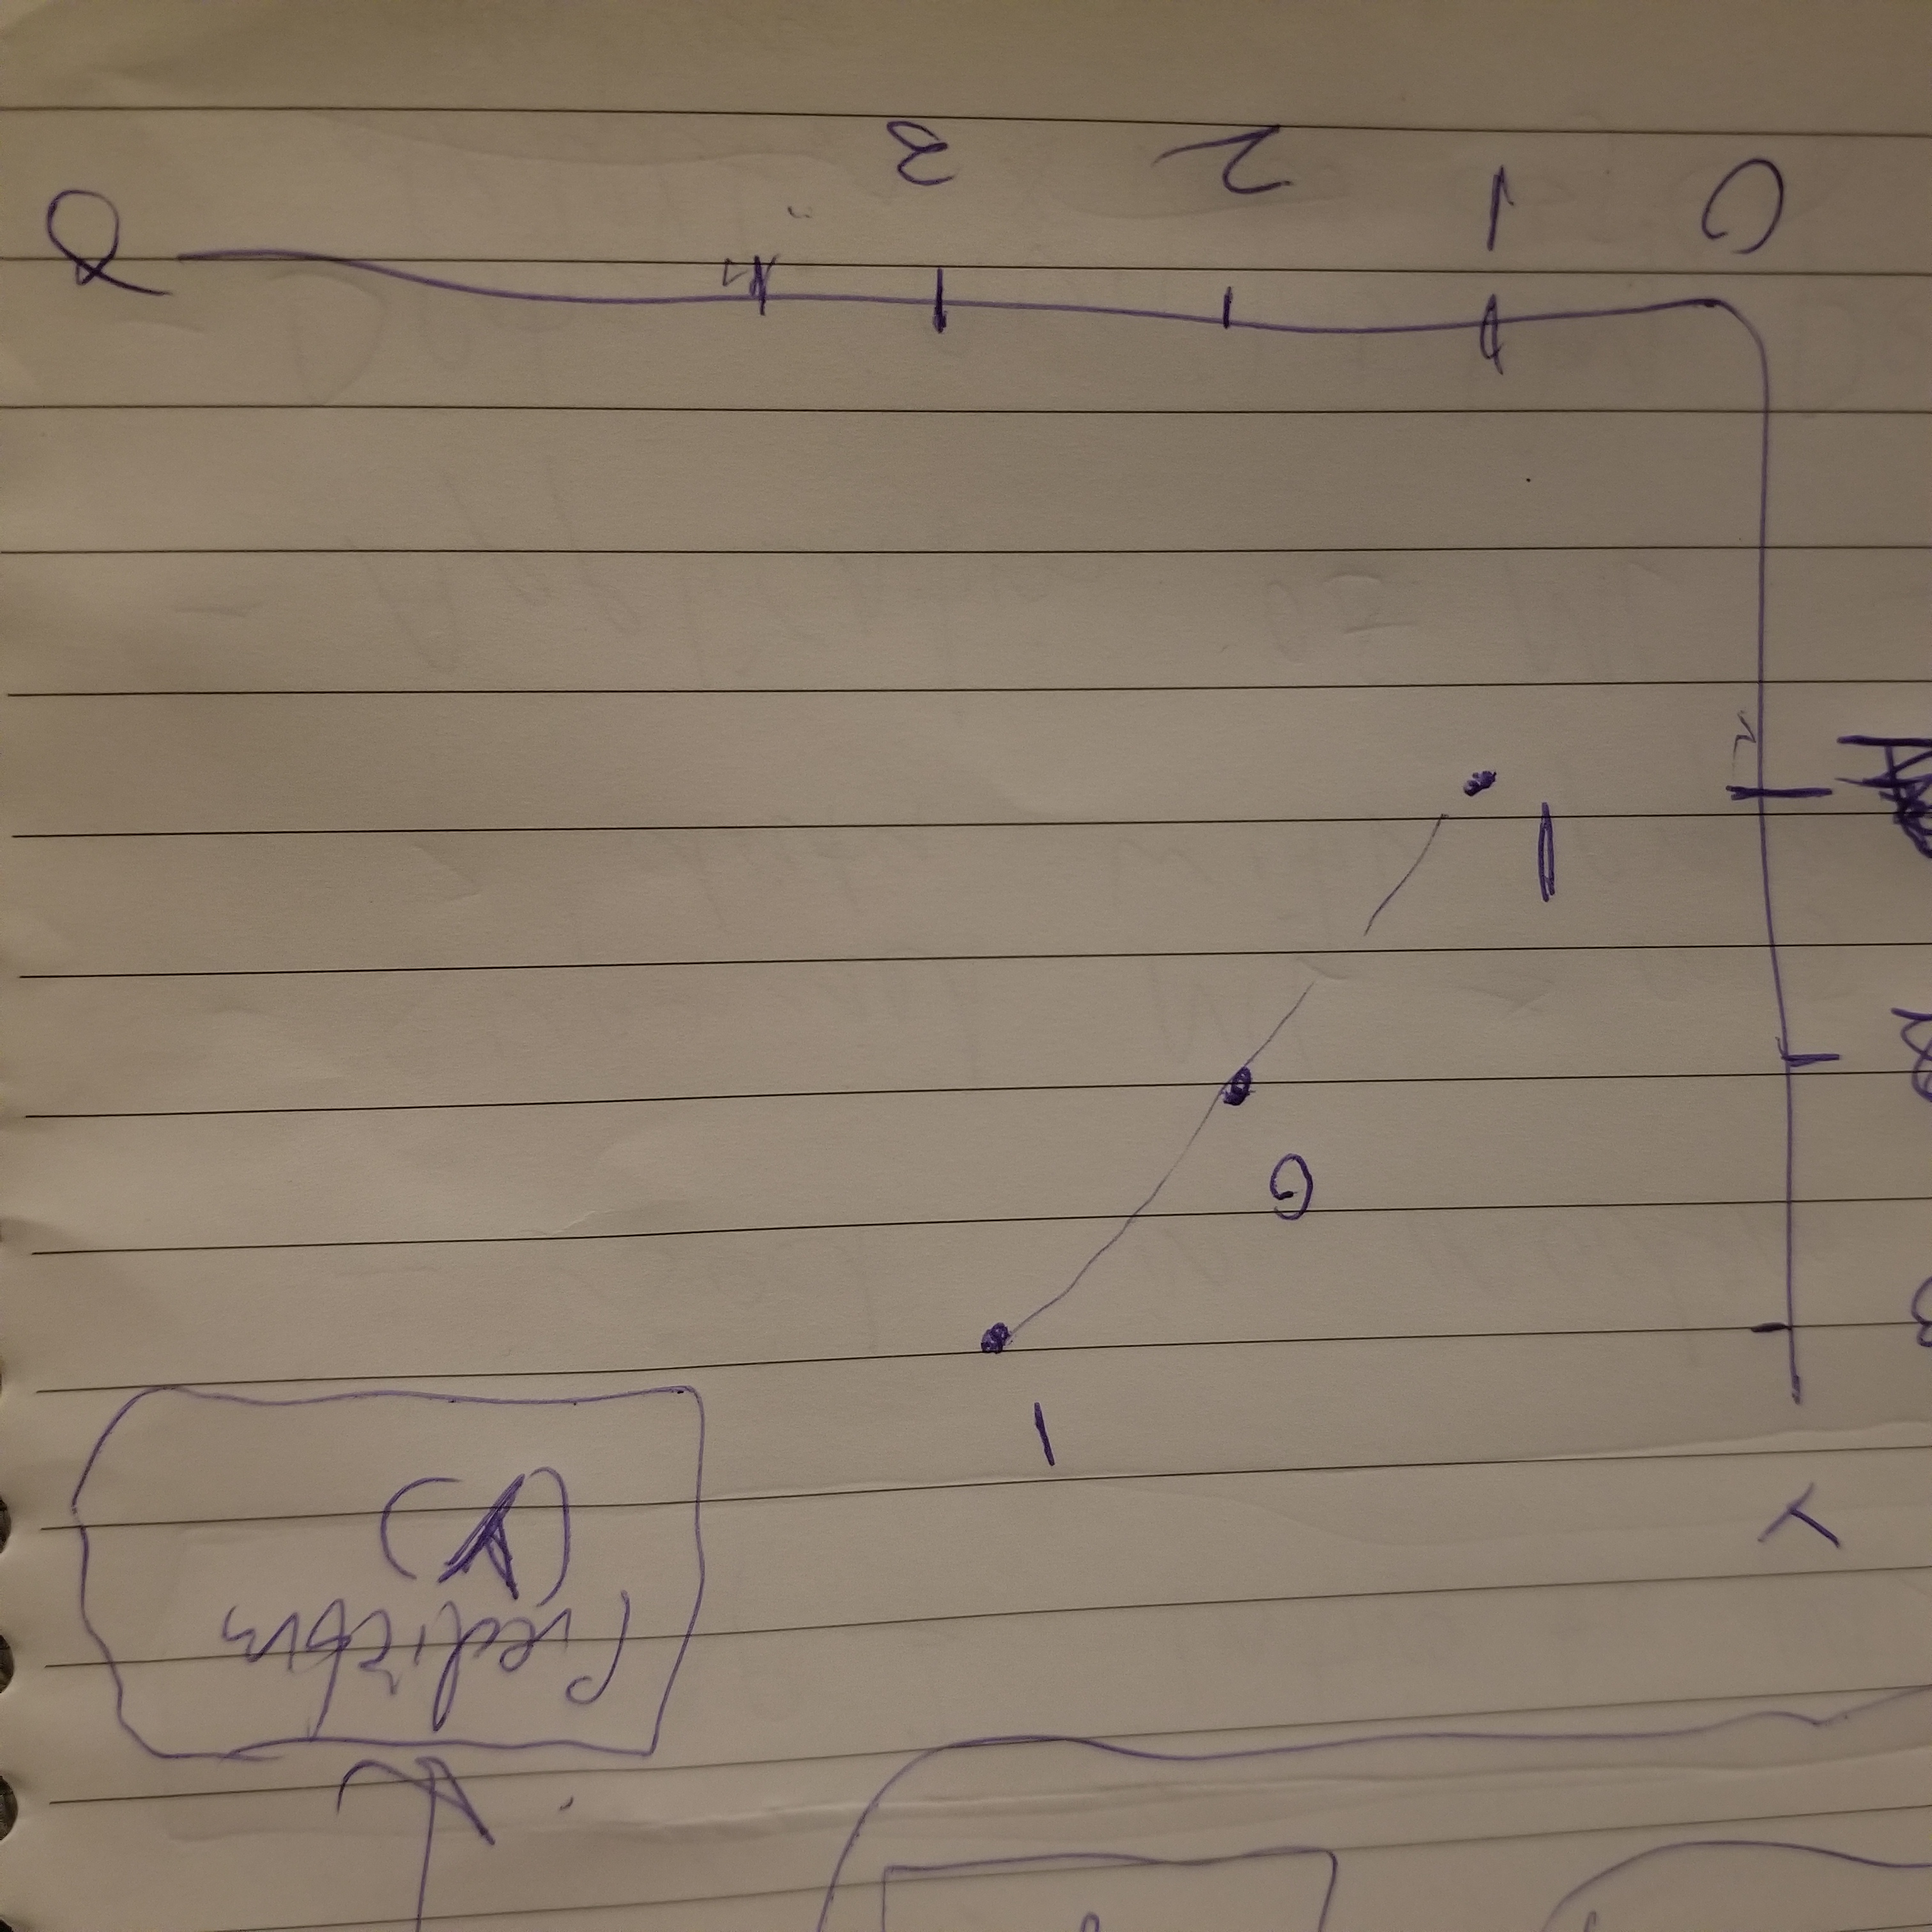 Prediction
(Y)
Y
1
3
0
2
1
1
0 1 2 3